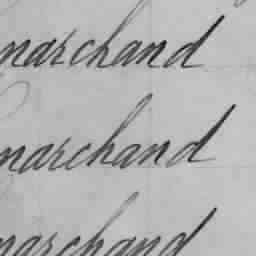 marchand
marchand
marchand